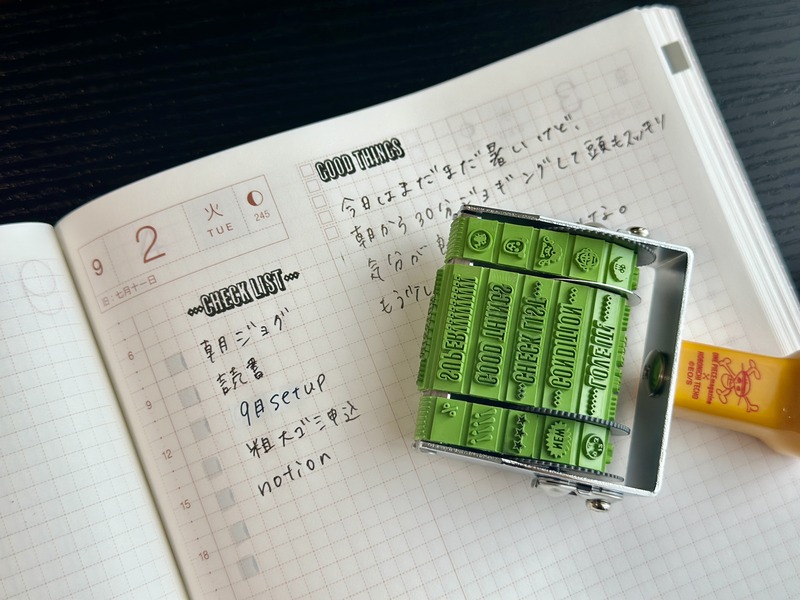 9 2 火 TUE 245
旧 七月十一日
GOOD THINGS
今日はまだまだ暑いけど、
朝から30分ジョギングして頭もスッキリ
気分が な。
もう
CHECK LIST
朝ジョグ
読書
9月setup
粗大ゴミ申込
notion
6
9
12
15
18
GOOD THINGS
CHECK LIST
CONDITION
ONE PIECE magazine
×
HOBONICHI TECHO